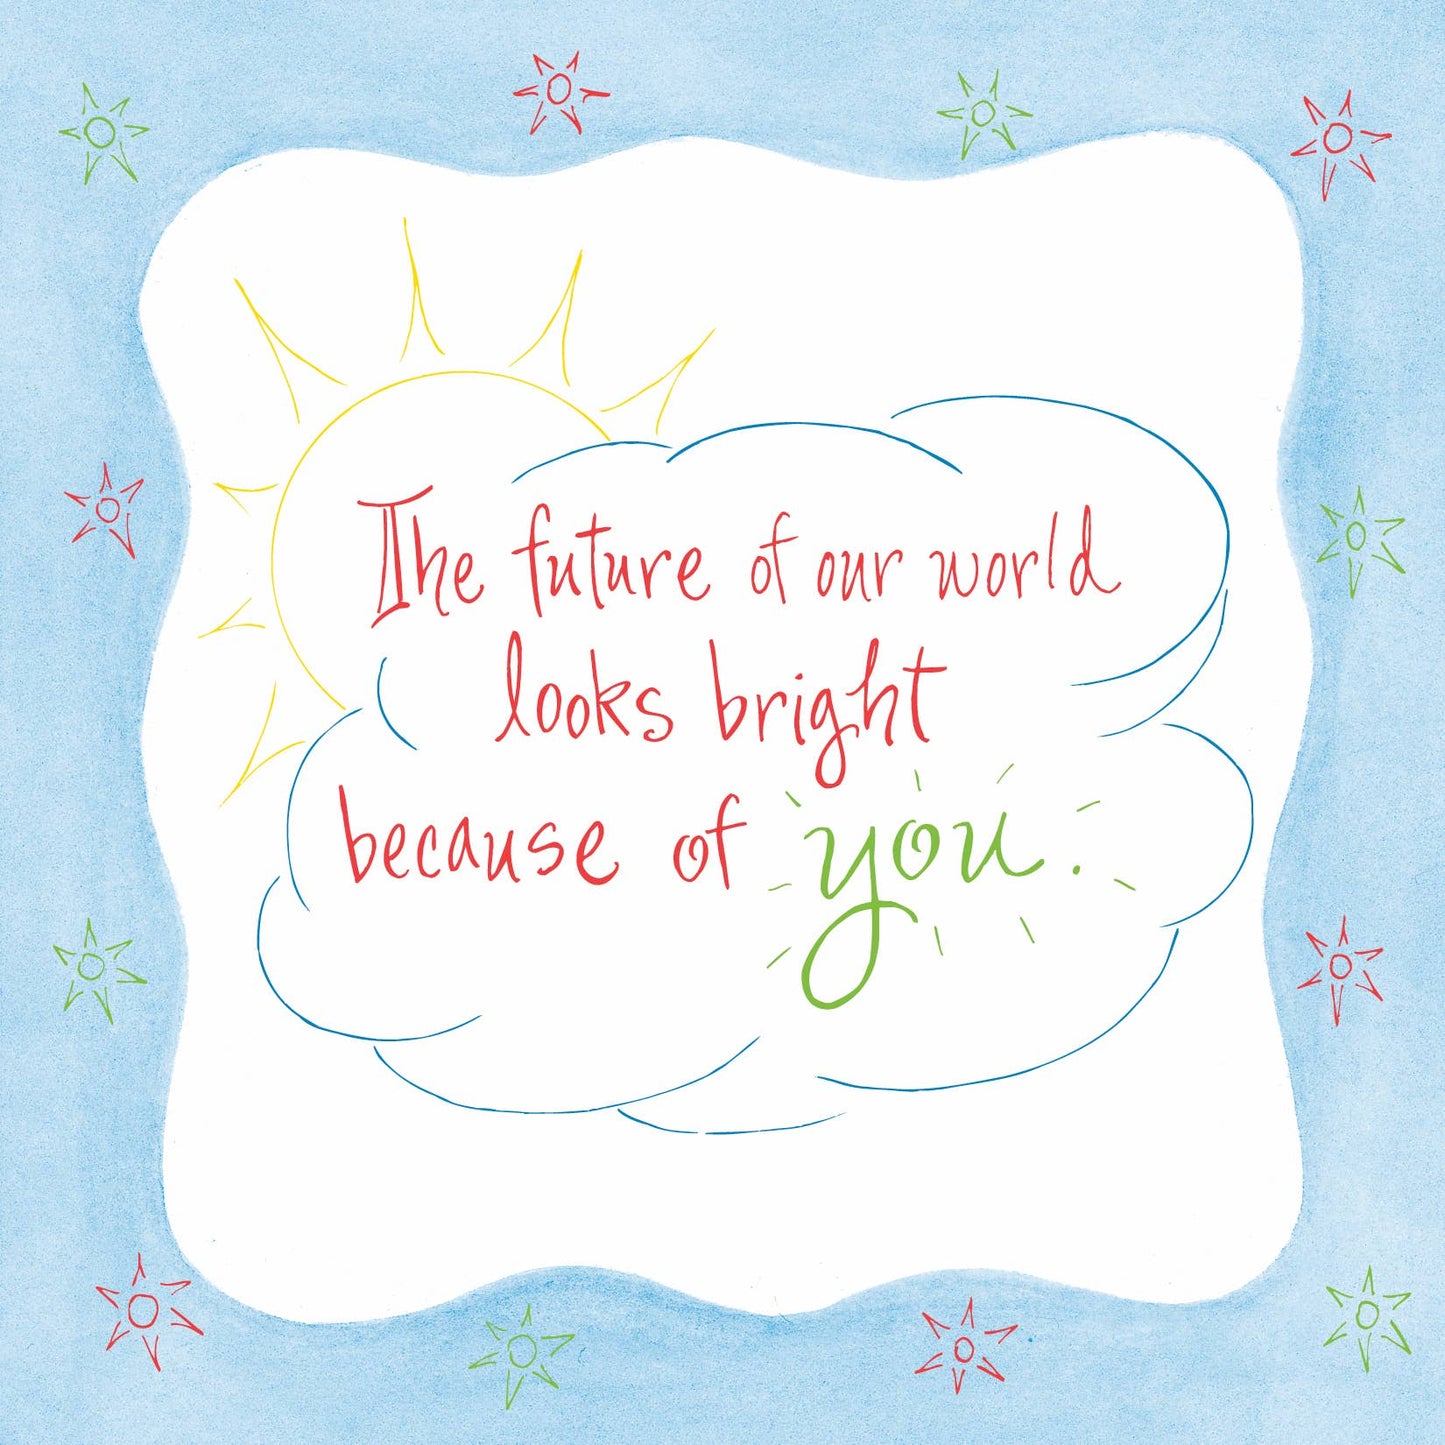 The future of our world
looks bright
because of you.